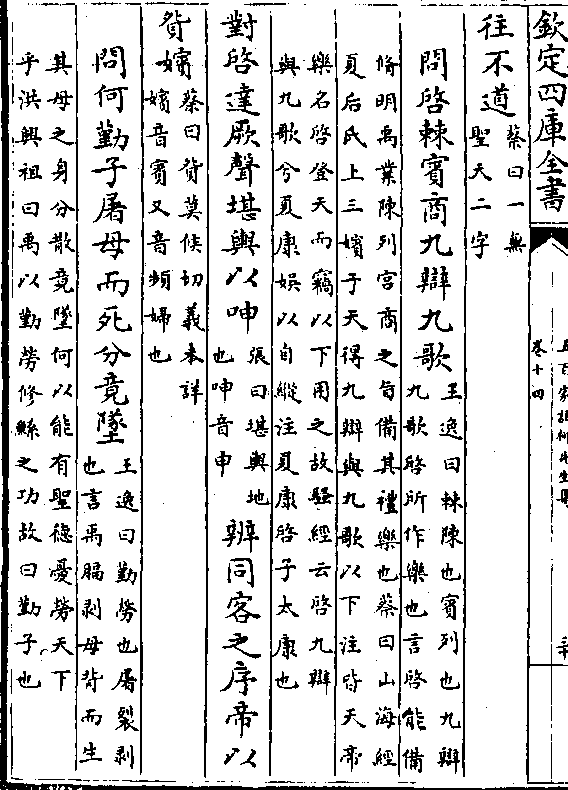 欽定四庫全書
卷十四
往不道蔡曰一無聖天二字
問啓棘賓商九辯九歌王逸曰棘陳也賓列也九辯九歌啓所作樂也言啓能備
脩明禹業陳列宮商之音備其禮樂也蔡曰山海經夏后氏上三嬪于天得九辯與九歌以下注皆天帝
樂名啓登天而竊以下用之故騷經云啓九辯與九歌兮夏康娛以自縱注夏康啓子太康也
對啓達厥聲堪輿以呻張曰堪輿地也呻音申辨同容之序帝以
貿嬪蔡曰貿莫候切義未詳嬪音賓又音頻婦也
問何勤子屠母而死分竟墜王逸曰勤勞也屠裂剥也言禹腷剥母背而生
其母之身分散竟墜何以能有聖德憂勞天下乎洪興祖曰禹以勤勞修鯀之功故曰勤子也